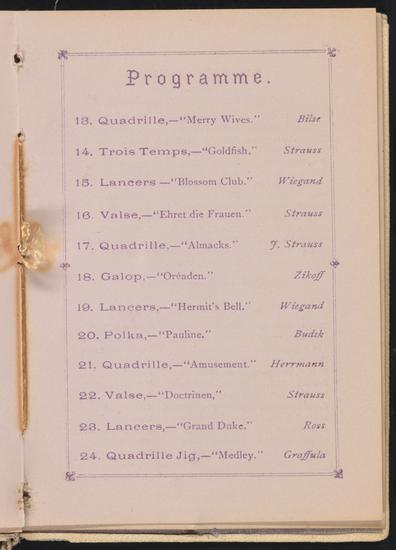 Programme.
13. Quadrille,—"Merry Wives." Bilse
14. Trois Temps,—"Goldfish." Strauss
15. Lancers—"Blossom Club." Wiegand
16. Valse,—"Ehret die Frauen." Strauss
17. Quadrille,—"Almacks." J. Strauss
18. Galop,—"Oréaden." Zikoff
19. Lancers,—"Hermit's Bell." Wiegand
20. Polka,—"Pauline." Budik
21. Quadrille,—"Amusement." Herrmann
22. Valse,—"Doctrinen," Strauss
23. Lancers,—"Grand Duke." Ross
24. Quadrille Jig,—"Medley." Graffula